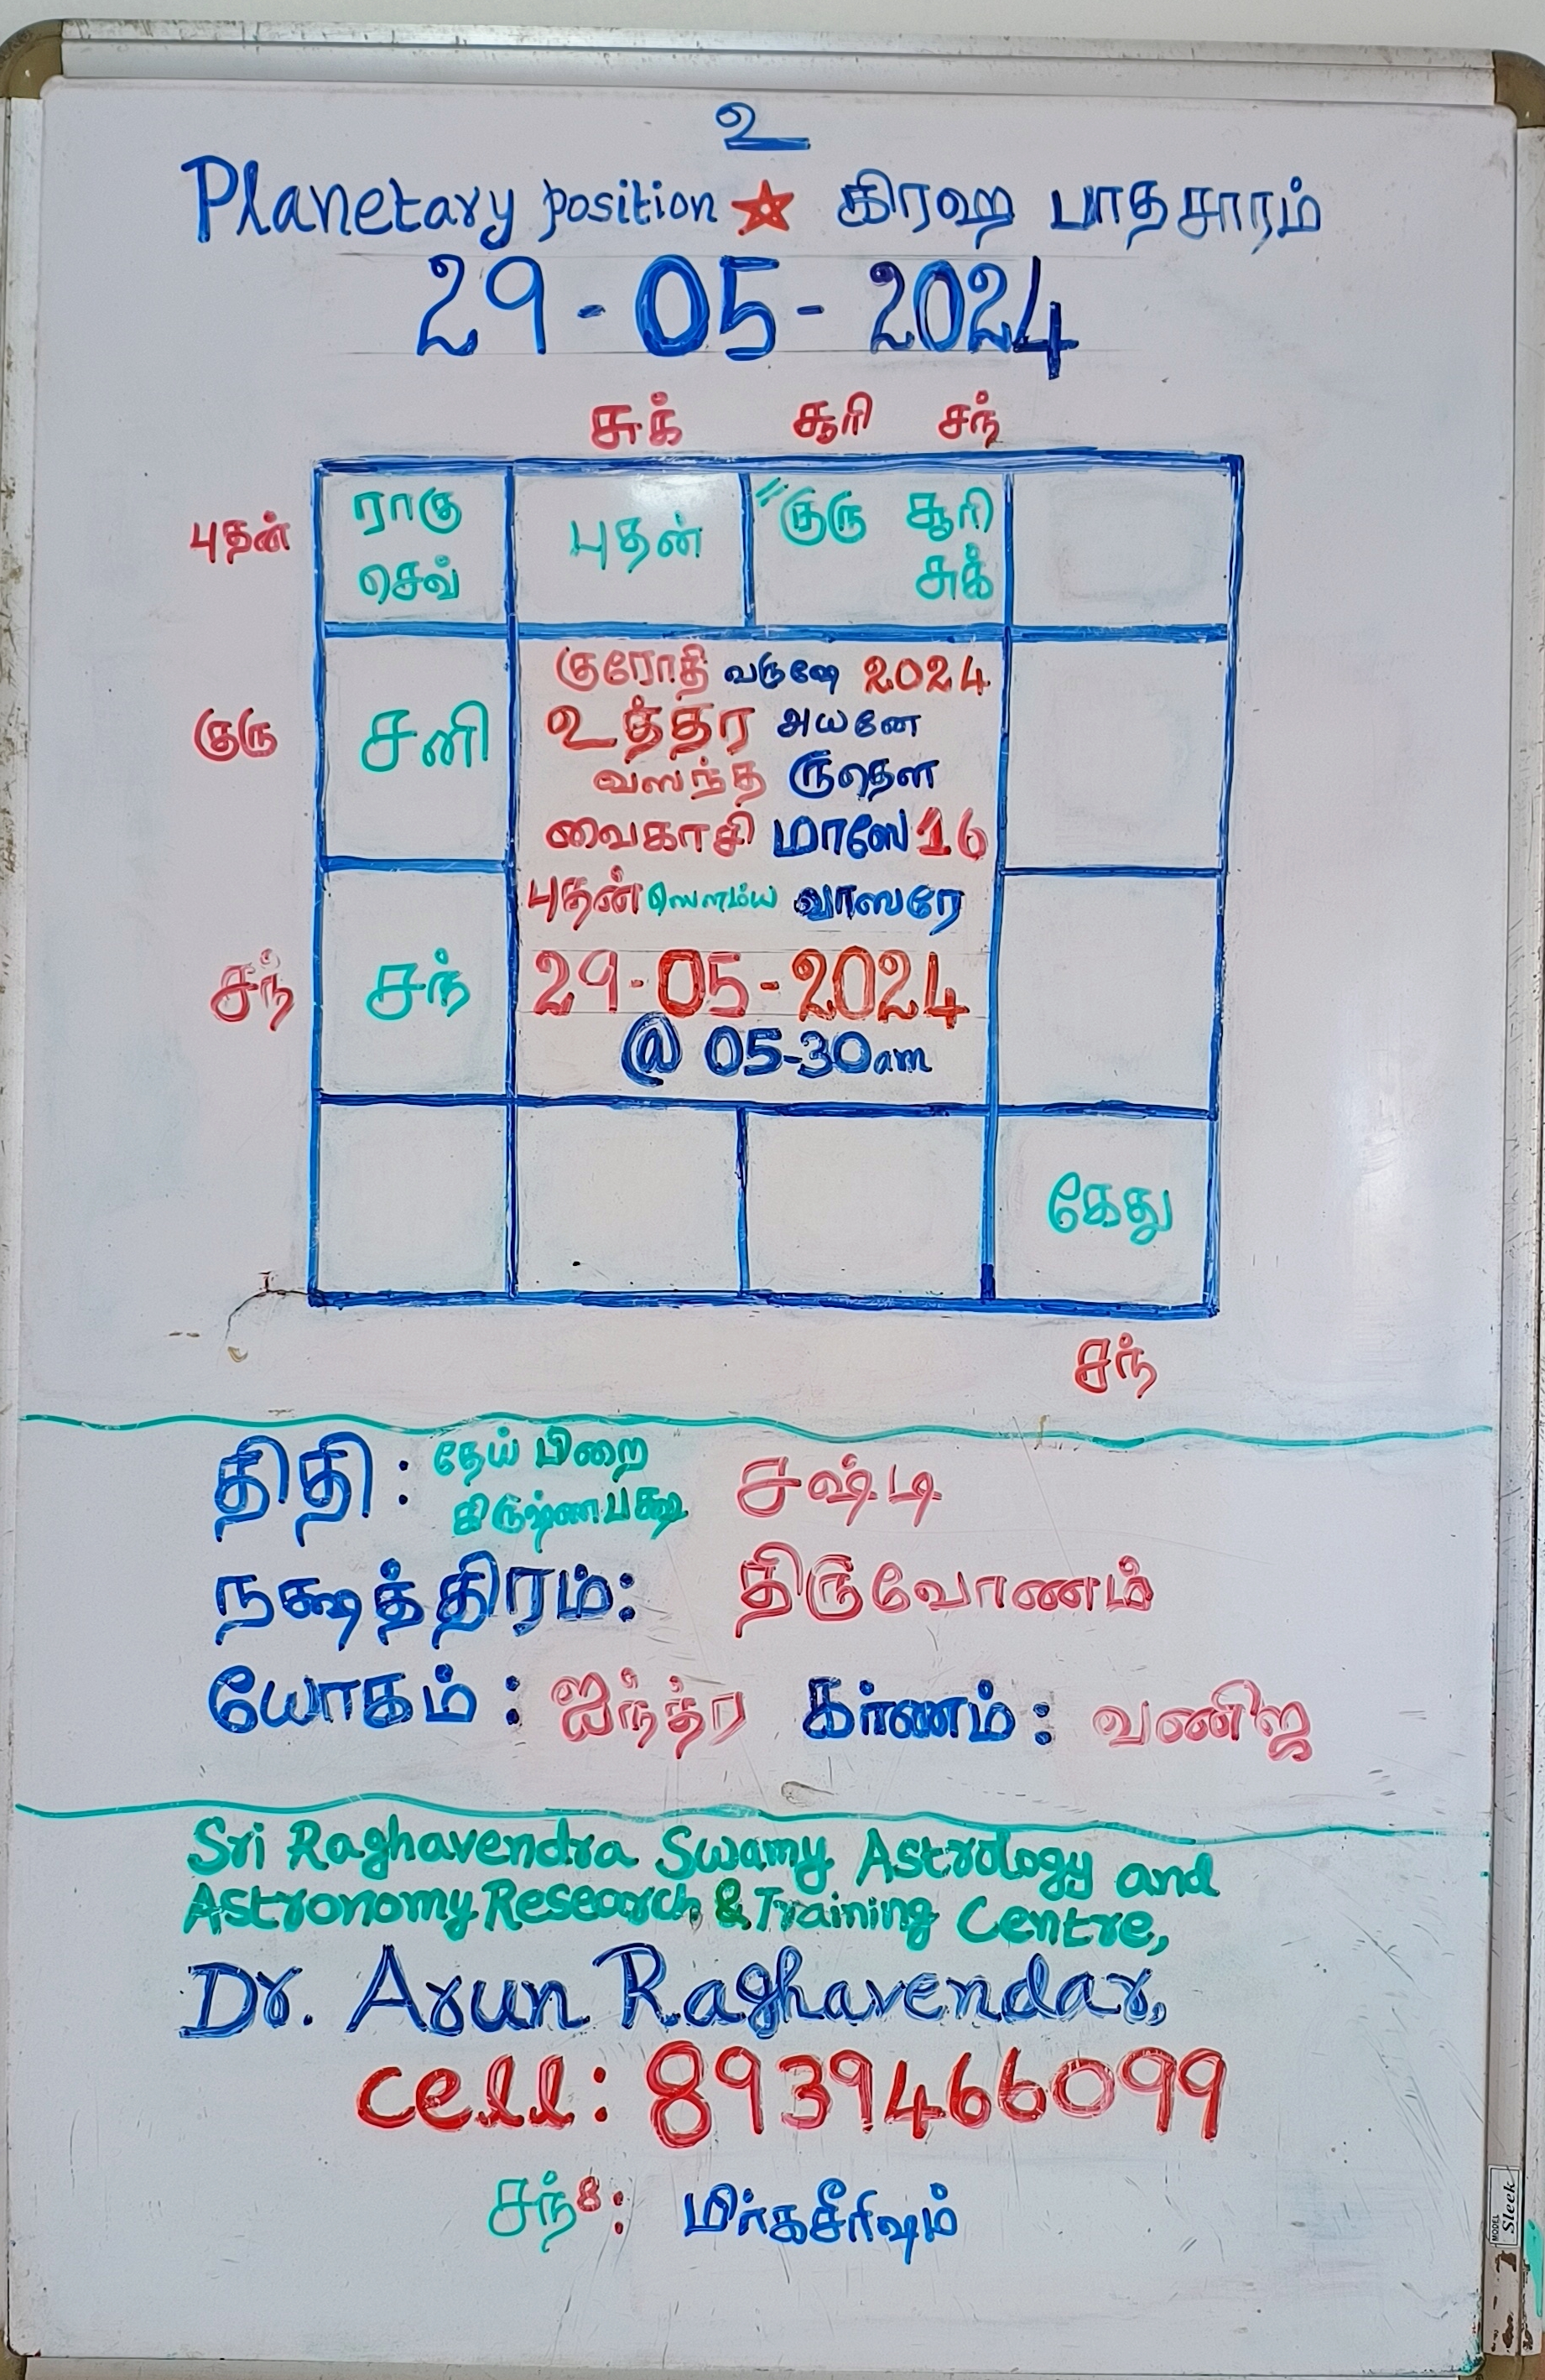 உ
Planetary position ★ கிரஹ பாதசாரம்
29-05-2024
சுக் சூரி சந்
புதன் ராகு செவ் புதன் "குரு சூரி சுக்
குரோதி வருஷே 2024
உத்தர அயனே
குரு சனி வஸந்த ருதௌ
வைகாசி மாஸே 16
புதன் ஸௌம்ய வாஸரே
சந் சந் 29-05-2024
@ 05-30am
கேது
சந்
திதி : தேய் பிறை கிருஷ்ணபக்ஷ சஷ்டி
நக்ஷத்திரம்: திருவோணம்
யோகம் : ஐந்த்ர கர்ணம் : வணிஜ
Sri Raghavendra Swamy Astrology and
Astronomy Research & Training Centre,
Dr. Arun Raghavendar,
cell: 8939466099
சந்8: மிர்கசீரிஷம்
MODEL Sleek